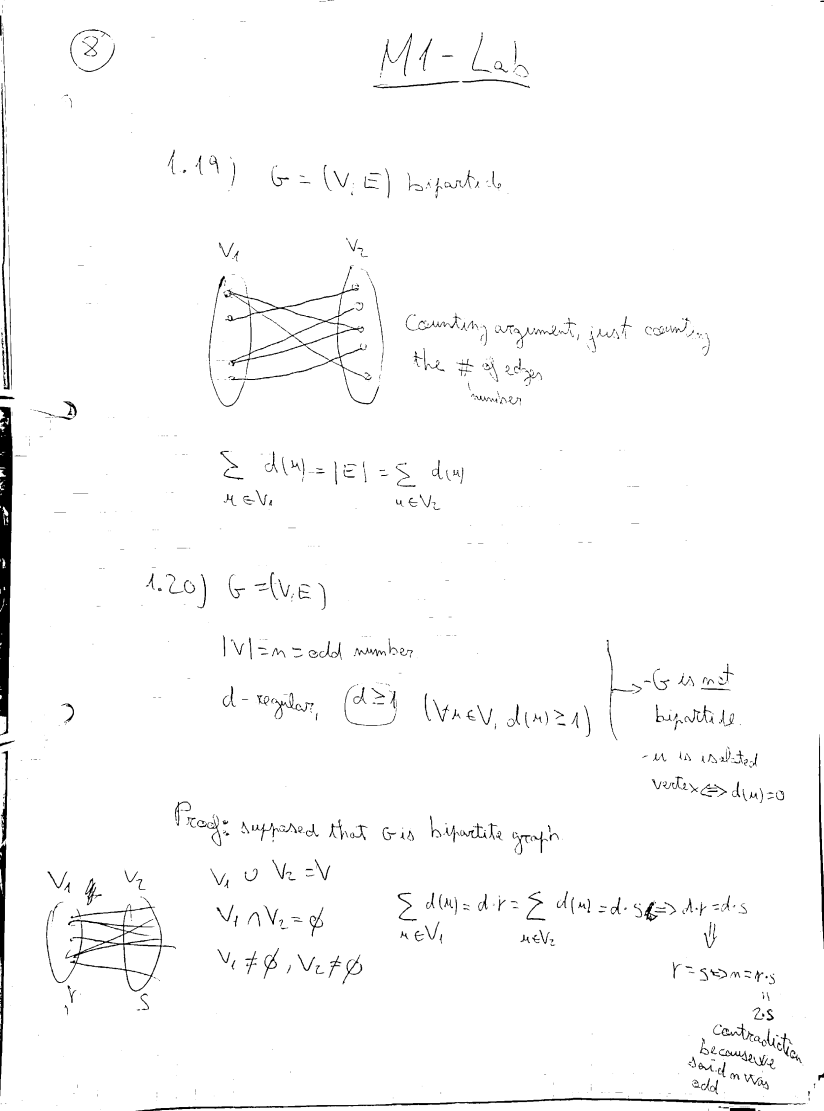 8
M1 - Lab
1.19) G = (V, E) bipartite
V₁ V₂
Counting argument, just counting
the # of edges
number
∑ d(u) = |E| = ∑ d(u)
u∈V₁ u∈V₂
1.20) G = (V, E)
|V| = n = odd number
d - regular, d ≥ 1 (∀u∈V, d(u) ≥ 1)
- G is not
bipartite.
- u is isolated
vertex ⇔ d(u) = 0
Proof: supposed that G is bipartite graph
V₁ V₂
r s
V₁ ∪ V₂ = V
V₁ ∩ V₂ = ∅
V₁ ≠ ∅, V₂ ≠ ∅
∑ d(u) = d·r = ∑ d(u) = d·s ⇔ d·r = d·s
u∈V₁ u∈V₂
⇓
r = s ⇔ n = r·s
=
2·s
Contradiction
because we
said n was
odd